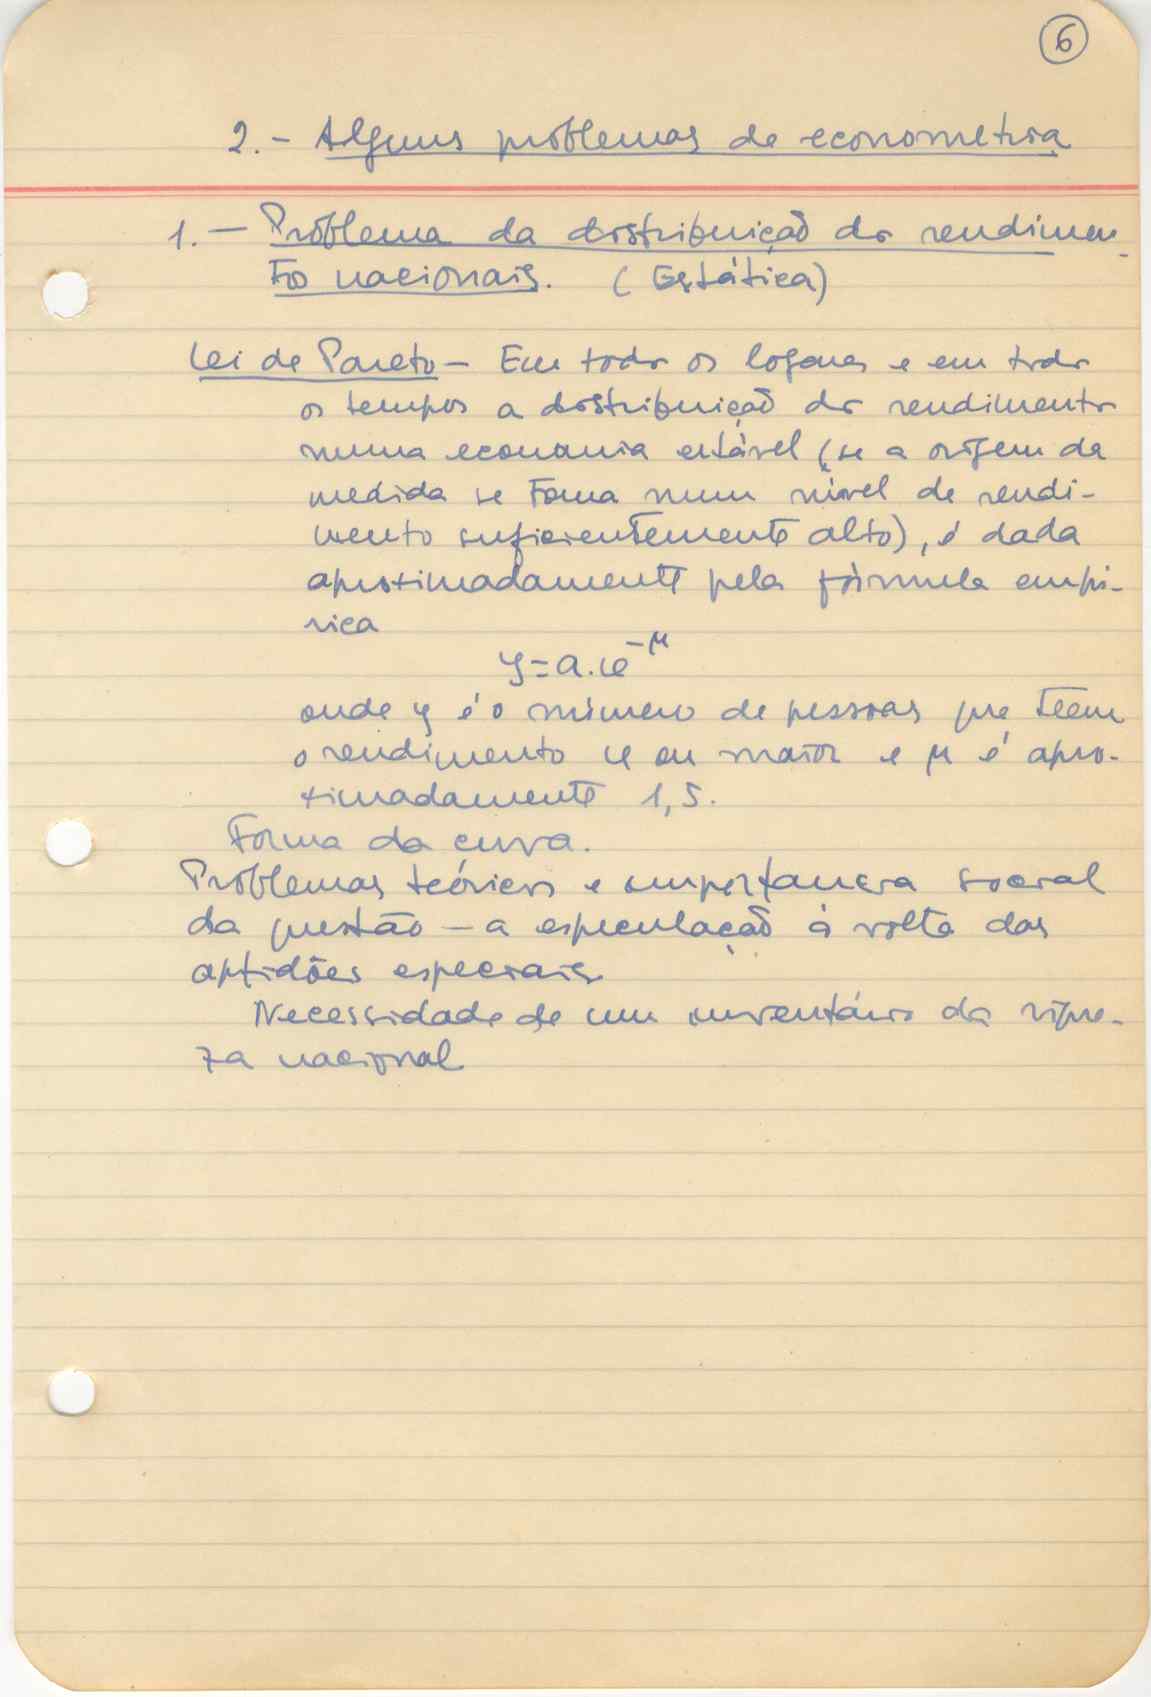 6
2.- Alguns problemas de econometria
1. — Problema da distribuição do rendimen-
to nacionais. (Estática)
Lei de Pareto — Em todos os logares e em todos
os tempos a distribuição do rendimento
numa economia estável (se a origem da
medida se toma num nível de rendi-
mento suficientemente alto), é dada
aproximadamente pela fórmula empí-
rica
y = a.x^{-μ}
onde y é o número de pessoas que teem
o rendimento x ou maior e μ é apro-
ximadamente 1,5.
Forma da curva.
Problemas teóricos e importancia social
da questão — a especulação à volta das
aptidões especiais.
Necessidade de um inventário da rique-
za nacional